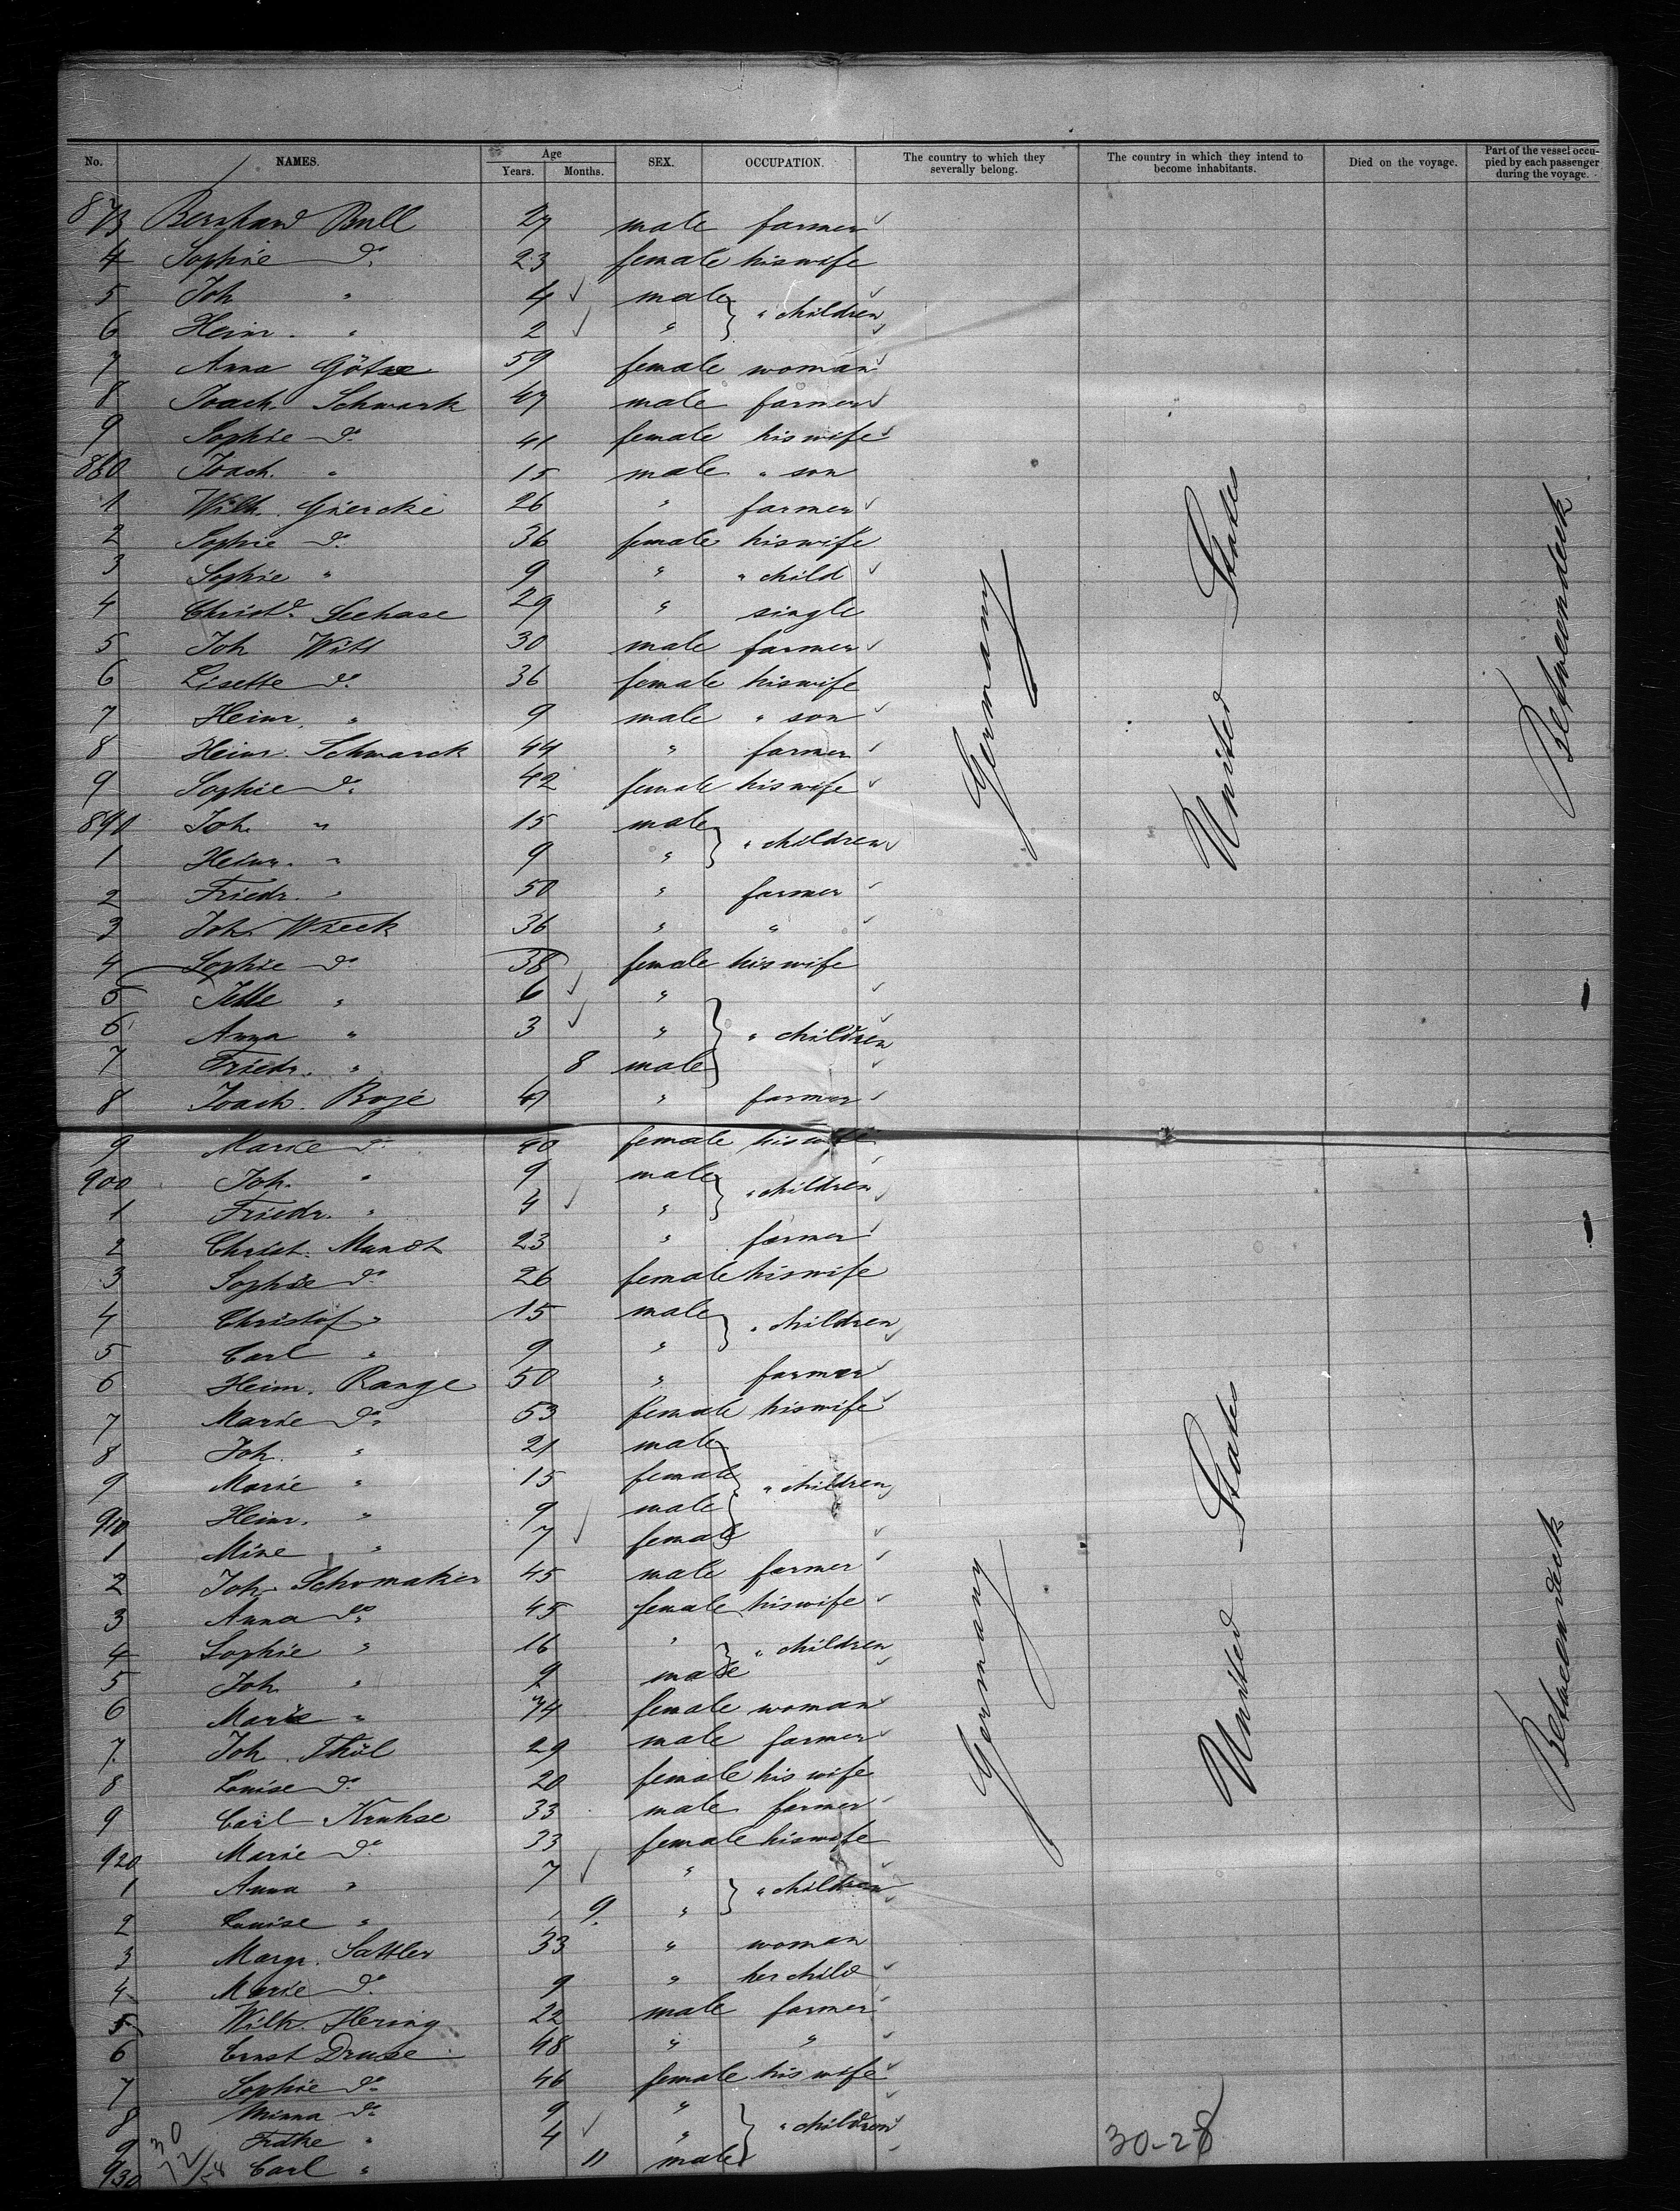 No. NAMES. Age Years. Months. SEX. OCCUPATION. The country to which they severally belong. The country in which they intend to become inhabitants. Died on the voyage. Part of the vessel occupied by each passenger during the voyage.
873 Bernhard Bull 27 male farmer
4 Sophie do. 23 female his wife
5 Joh " 4 male " children
6 Heinr. " 2 "
7 Anna Götze 59 female woman
8 Joach. Schwark 47 male farmer
9 Sophie do. 41 female his wife
880 Joach. " 15 male " son
1 Wilh. Giercke 26 " farmer
2 Sophie do. 36 female his wife
3 Sophie " 9 " " child
4 Christe. Seehase 29 " single
5 Joh Witt 30 male farmer
6 Lisette do. 36 female his wife
7 Heinr. " 9 male " son
8 Heinr. Schwarck 44 " farmer
9 Sophie do. 42 female his wife
890 Joh. " 15 male " children
1 Heinr. " 9 "
2 Friedr. " 50 " farmer
3 Joh. Wieck 36 " "
4 Sophie do. 38 female his wife
5 Jette " 6 "
6 Anna " 3 " " children
7 Friedr. " 8 male
8 Joach. Boje " farmer
9 Marie do. 40 female his wife
900 Joh. " 9 male " children
1 Friedr. " 4 "
2 Christ. Mundt 23 " farmer
3 Sophie do. 26 female his wife
4 Christof " 15 male " children
5 Carl " 9 "
6 Heinr. Range 50 " farmer
7 Marie do. 53 female his wife
8 Joh. " 21 male
9 Marie " 15 female " children
910 Heinr. " 9 male
1 Mine " 7 female
2 Joh. Schomaker 45 male farmer
3 Anna do. 45 female his wife
4 Sophie " 16 " " children
5 Joh. " 9 male
6 Marie " 74 female woman
7. Joh. Thül 29 male farmer
8 Louise do. 20 female his wife
9 Carl Kruhse 33 male farmer
920 Marie do. 33 female his wife
1 Anna " 7 " " children
2 Louise " 9. "
3 Margr. Sattler 33 " woman
4 Marie do. 9 " her child
5 Wilh. Hering 22 male farmer
6 Ernst Druse 48 " "
7 Sophie do. 46 female his wife
8 Minna do. 9 " " children
9 Fritke " 4 "
930 Carl " 11 male
Germany
United States
Betweendeck
Germany
United States
Betweendeck
30-28